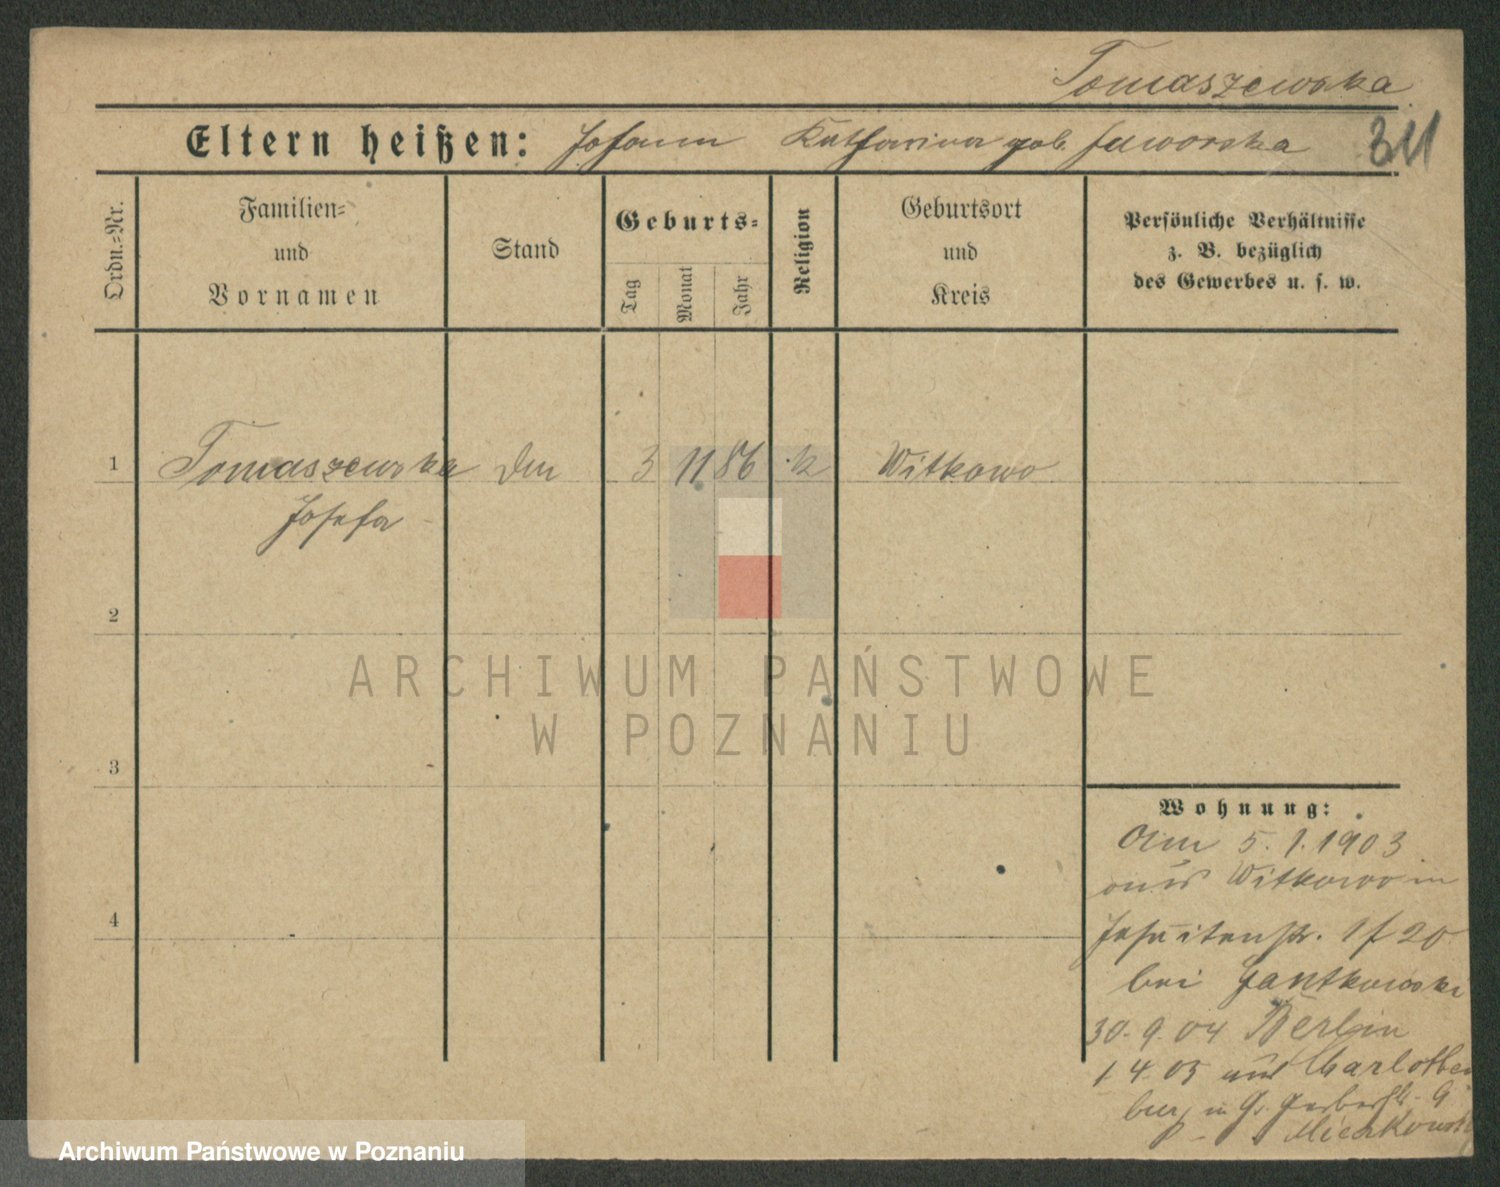 Tomaszewska
Eltern heißen: Johann Katharina geb. Jaworska 311
Ordn.=Nr.
Familien=
und
Vornamen
Stand
Geburts=
Tag
Monat
Jahr
Religion
Geburtsort
und
Kreis
Persönliche Verhältnisse
z. B. bezüglich
des Gewerbes u. s. w.
1 Tomaszewska 3 11 86 k Witkowo
Josefa
2
3
4
ARCHIWUM PAŃSTWOWE
W POZNANIU
Wohnung:
Am 5. 1. 1903
aus Witkowo in
Jesuitenstr. 20
bei
30. 9. 04 Berlin
1 4. 05 aus Charlotten
burg in Gr. Gerberstr. 9
Archiwum Państwowe w Poznaniu